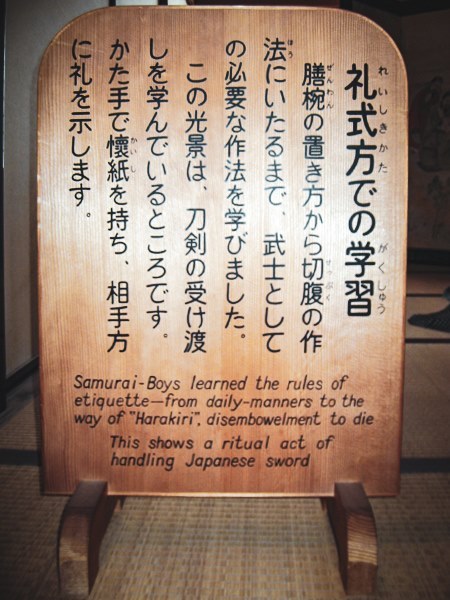 礼式方での学習
膳椀の置き方から切腹の作
法にいたるまで、武士として
の必要な作法を学びました。
この光景は、刀剣の受け渡
しを学んでいるところです。
かた手で懐紙を持ち、相手方
に礼を示します。
れいしきかた
がくしゅう
ぜんわん
せっぷく
ほう
かいし
Samurai-Boys learned the rules of
etiquette—from daily-manners to the
way of "Harakiri", disembowelment to die
This shows a ritual act of
handling Japanese sword